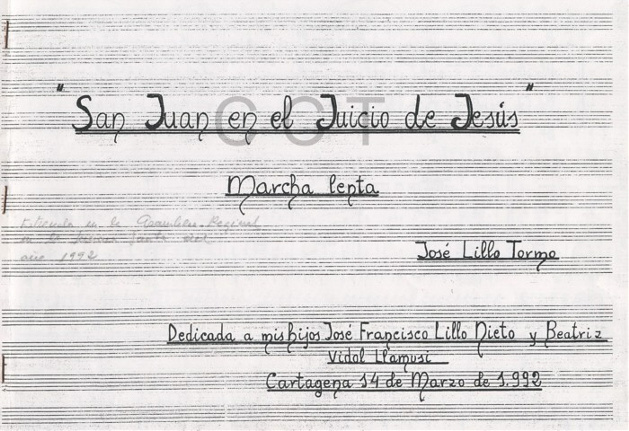 "San Juan en el Juicio de Jesús"
CCT
Marcha lenta
en la Asamblea Regional
año 1992
José Lillo Tormo
Dedicada a mis hijos José Francisco Lillo Nieto y Beatriz
Vidal Llamusí
Cartagena 14 de Marzo de 1.992